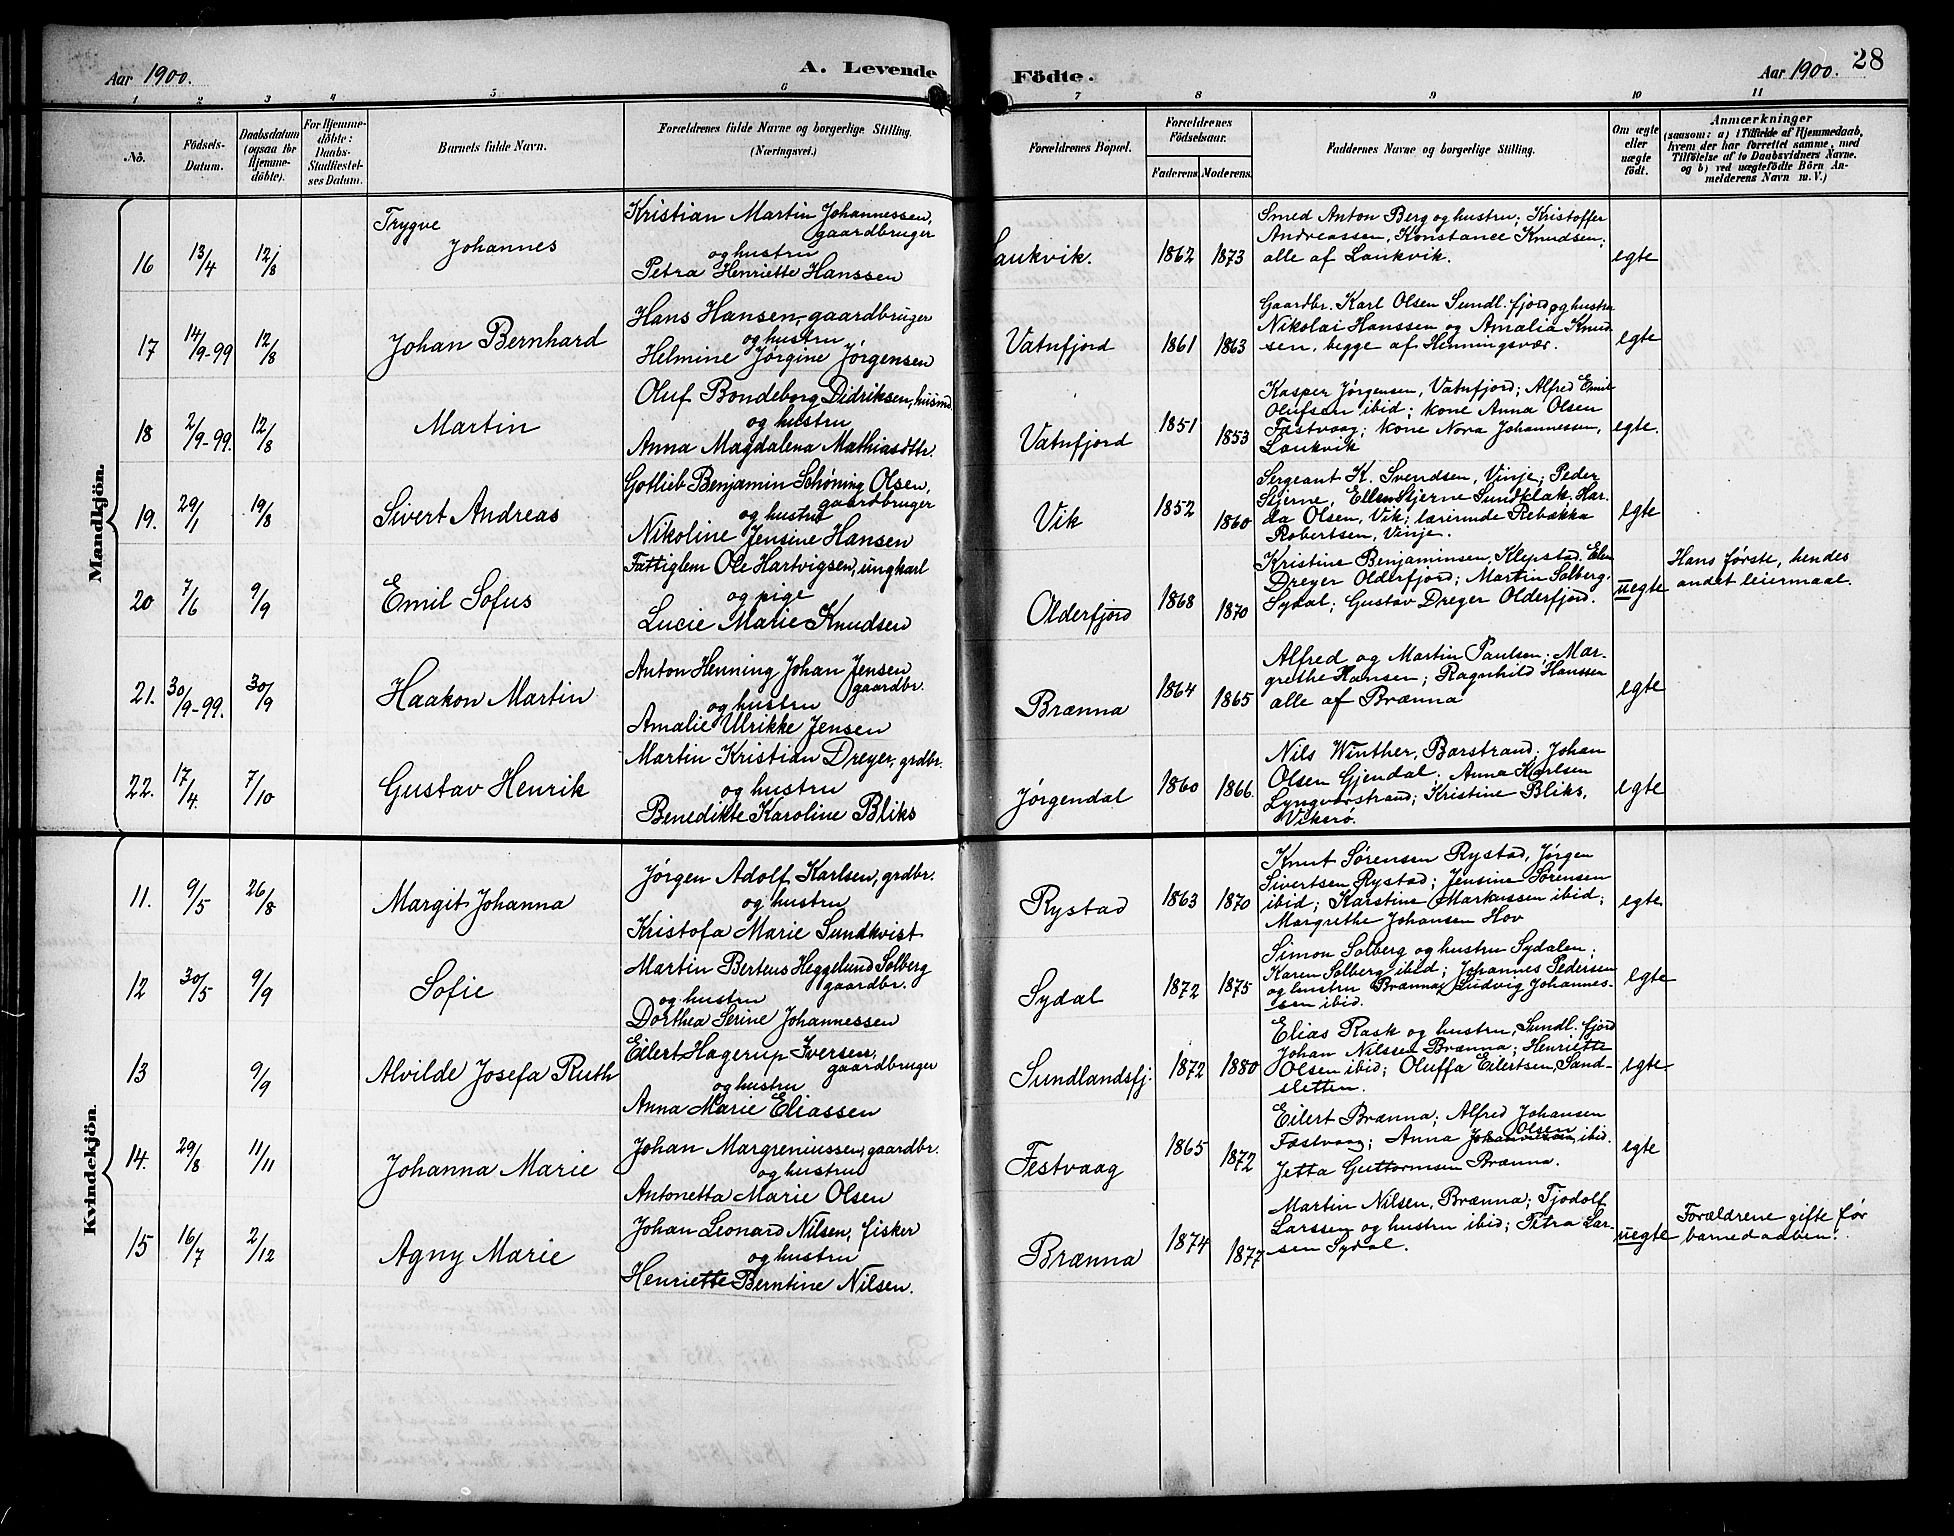 Aar 1900.
A. Levende
Födte.
Aar 1900.
28
1 2 3 4 5 6 7 8 9 10 11
No.
Födsels-
Datum.
Daabsdatum
(ogsaa for
Hjemme-
döbte).
For Hjemme-
döbte:
Daabs-
Stadfæstel-
ses Datum.
Barnets fulde Navn.
Forældrenes fulde Navne og borgerlige Stilling.
(Næringsvei.)
Forældrenes Bopæl.
Forældrenes
Födselsaar.
Faderens. Moderens.
Faddernes Navne og borgerlige Stilling.
Om ægte
eller
uægte
födt.
Anmærkninger
(saasom: a) i Tilfælde af Hjemmedaab,
hvem der har forrettet samme, med
Tilföielse af to Daabsvidners Navne.
og b) ved uægtefödte Börn An-
melderens Navn m. V.)
Mandkjön.
16 13/4 12/8
Trygve
Johannes
Kristian Martin Johannessen,
gaardbruger
og hustru
Petra Henriette Hanssen
Laukvik. 1862 1873
Smed Anton Berg og hustru; Kristoffer
Andreassen, Konstance Knudsen,
alle af Laukvik.
egte
17 14/9-99 12/8
Johan Bernhard
Hans Hansen, gaardbruger
og hustru
Helmine Jørgine Jørgensen
Vatnfjord 1861 1863
Gaardbr. Karl Olsen Sundl. fjord og hustru
Nikolai Hanssen og Amalia Knud
sen, begge af Henningsvær.
egte
18 2/9-99. 12/8
Martin
Oluf Bondeborg Didriksen, husmd
og hustru
Anna Magdalena Mathiasdttr.
Vatnfjord 1851 1853
Kasper Jørgensen, Vatnfjord; Alfred Emil
Olufsen ibid; kone Anna Olsen
Fæstvaag; kone Nora Johannessen,
Laukvik
egte.
19. 29/1 19/8
Sivert Andreas
Gotlieb Benjamin Schøning Olsen,
gaardbruger
og hustru
Nikoline Jensine Hansen
Vik 1852 1860
Sergeant K. Svendsen, Vinje; Peder
Stjerne, Ellen Stjerne Sundklak. Har-
da Olsen, Vik; lærerinde Rebækka
Robertsen, Vinje.
egte
20 7/6 9/9
Emil Sofus
Fattiglem Ole Hartvigsen, ungkarl
og pige
Lucie Marie Knudsen
Olderfjord 1868 1870
Kristine Benjaminsen, Klepstad. Elen
Dreyer Olderfjord; Martin Solberg.
Sydal; Gustav Dreyer Olderfjord.
uegte
Hans første, hendes
andet leiermaal.
21. 30/9-99. 30/9
Haakon Martin
Anton Henning Johan Jensen
gaardbr.
og hustru
Amalie Ulrikke Jensen
Brænna 1864 1865
Alfred og Martin Paulsen; Mar-
grethe Hansen; Ragnhild Hanssen
alle af Brænna
egte
22. 17/4. 7/10
Gustav Henrik
Martin Kristian Dreyer, grdbr.
og hustru
Benedikte Karoline Bliks
Jørgendal 1860 1866
Nils Winther, Barstrand; Johan
Olsen Gjendal. Anna Karlsen
Lyngværstrand; Kristine Bliks,
Vikerø.
egte
Kvindekjön.
11. 9/5 26/8
Margit Johanna
Jørgen Adolf Karlsen, grdbr.
og hustru
Kristofa Marie Sundkvist
Rystad 1863 1870
Knut Sørensen Rystad, Jørgen
Sivertsen Rystad; Jensine Sørensen
ibid; Karstine Markussen ibid;
Margrethe Johansen Hov
egte
12 30/5 9/9
Sofie
Martin Berteus Heggelund Solberg
gaardbr.
og hustru
Dorthea Serine Johannessen
Sydal 1872 1875
Simon Solberg og hustru Sydalen;
Karen Solberg ibid; Johannes Pedersen
og hustru Brænna; Ludvig Johannes-
sen ibid.
egte
13 9/9
Alvilde Josefa Ruth
Eilert Hagerup Iversen,
gaardbruger
og hustru
Anna Marie Eliassen
Sundlandsfj. 1872 1880
Elias Rask og hustru, Sundl. fjord
Johan Nilssen Brænna; Henriette
Olsen ibid; Oluffa Eilertsen, Sand-
sletten.
egte
14. 29/8 11/11
Johanna Marie
Johan Margreniussen, gaardbr.
og hustru
Antonetta Marie Olsen
Festvaag 1865 1872
Eilert Brænna; Alfred Johansen
Olsen
Fæstvaag; Anna ibid.
Jetta Guttormsen Brænna.
egte
15 16/7 2/12
Agny Marie
Johan Leonard Nilsen, fisker
og hustru
Henriette Berntine Nilsen.
Brænna 1874 1877
Martin Nilsen, Brænna; Tjodolf
Larssen og hustru ibid; Petra Lar-
sen Sydal.
uegte
Forældrene gifte før
barnedaaben.